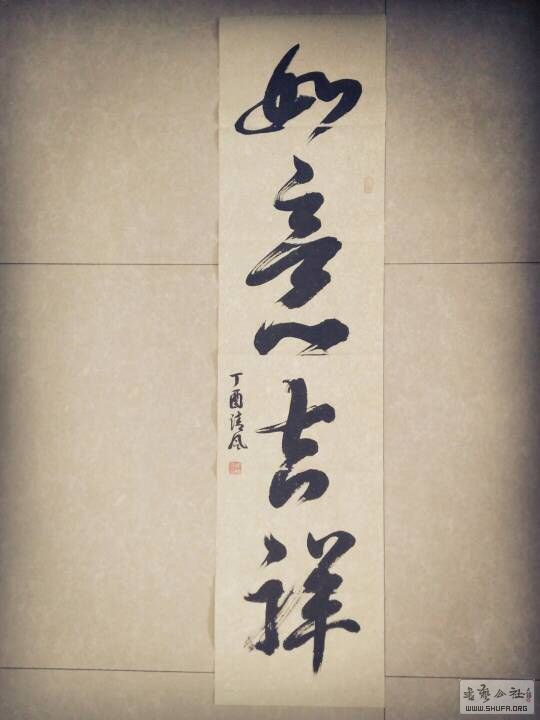 如意吉祥
丁酉清风
WWW.SHUFA.ORG